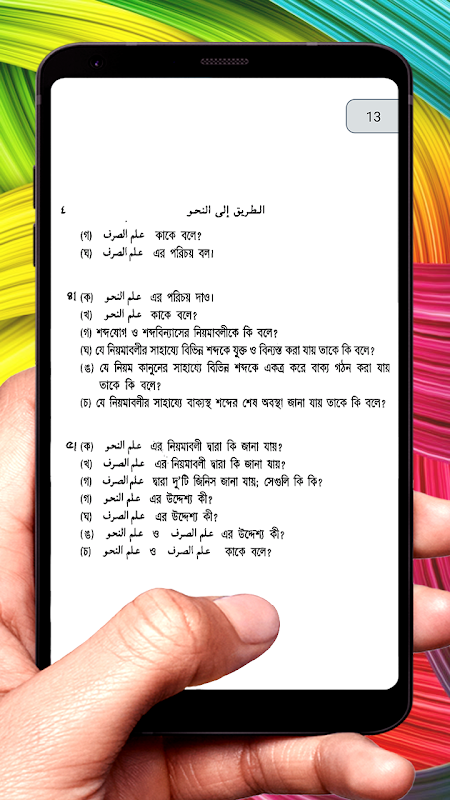 13
٤ الطريق إلى النحو
(গ) علم الصرف কাকে বলে?
(ঘ) علم الصرف এর পরিচয় বল।
৪। (ক) علم النحو এর পরিচয় দাও।
(খ) علم النحو কাকে বলে?
(গ) শব্দযোগ ও শব্দবিন্যাসের নিয়মাবলীকে কি বলে?
(ঘ) যে নিয়মাবলীর সাহায্যে বিভিন্ন শব্দকে যুক্ত ও বিন্যস্ত করা যায় তাকে কি বলে?
(ঙ) যে নিয়ম কানুনের সাহায্যে বিভিন্ন শব্দকে একত্র করে বাক্য গঠন করা যায়
তাকে কি বলে?
(চ) যে নিয়মাবলীর সাহায্যে বাক্যস্থ শব্দের শেষ অবস্থা জানা যায় তাকে কি বলে?
৫। (ক) علم النحو এর নিয়মাবলী দ্বারা কি জানা যায়?
(খ) علم الصرف এর নিয়মাবলী দ্বারা কি জানা যায়?
(গ) علم الصرف দ্বারা দু'টি জিনিস জানা যায়; সেগুলি কি কি?
(গ) علم النحو এর উদ্দেশ্য কী?
(ঘ) علم الصرف এর উদ্দেশ্য কী?
(ঙ) علم النحو ও علم الصرف এর উদ্দেশ্য কী?
(চ) علم النحو ও علم الصرف কাকে বলে?